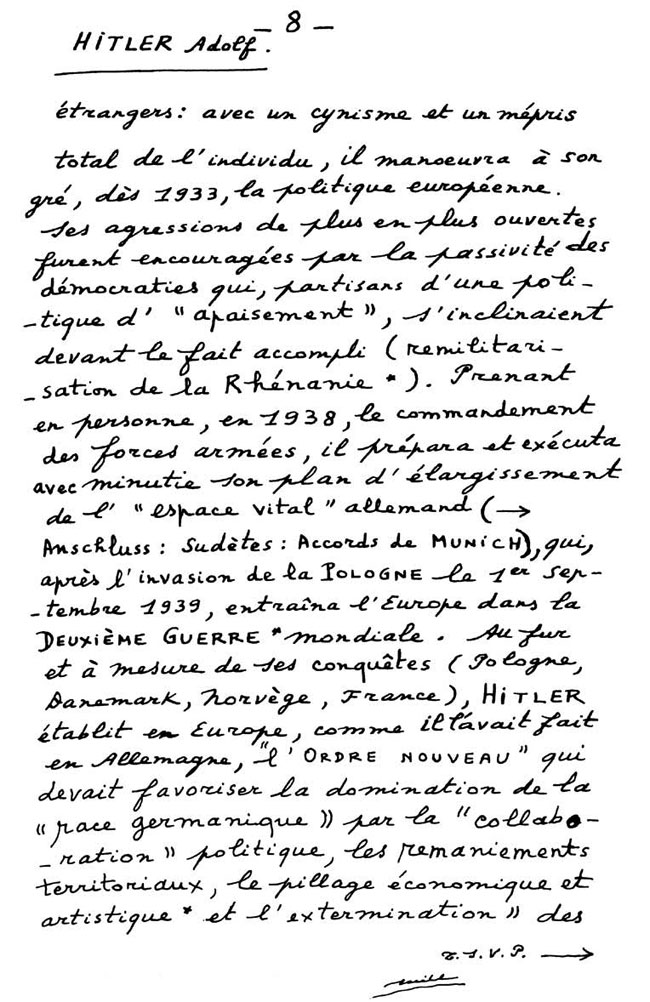 – 8 –
HITLER Adolf.
étrangers : avec un cynisme et un mépris
total de l'individu, il manoeuvra à son
gré, dès 1933, la politique européenne.
Ses agressions de plus en plus ouvertes
furent encouragées par la passivité des
démocraties qui, partisans d'une poli-
-tique d' "apaisement", s'inclinaient
devant le fait accompli (remilitari-
-sation de la Rhénanie *). Prenant
en personne, en 1938, le commandement
des forces armées, il prépara et exécuta
avec minutie son plan d'élargissement
de l' "espace vital" allemand (→
Anschluss : Sudètes : Accords de MUNICH), qui,
après l'invasion de la POLOGNE le 1er Sep-
-tembre 1939, entraîna l'Europe dans la
DEUXIÈME GUERRE * mondiale. Au fur
et à mesure de ses conquêtes (Pologne,
Danemark, Norvège, France), HITLER
établit en Europe, comme il l'avait fait
en Allemagne, "l'ORDRE NOUVEAU" qui
devait favoriser la domination de la
"race germanique" par la "collabo-
-ration" politique, les remaniements
territoriaux, le pillage économique et
artistique * et l'extermination" des
T.S.V.P. →